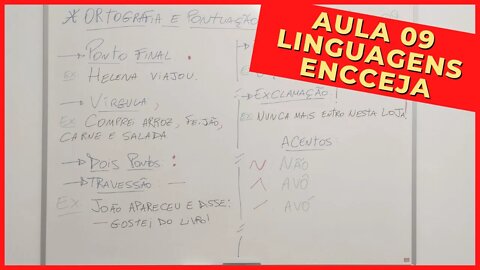 * ORTOGRAFIA E PONTUAÇÃO
→ PONTO FINAL .
EX: HELENA VIAJOU.
→ VÍRGULA ,
EX: COMPREI ARROZ, FEIJÃO,
CARNE E SALADA
→ DOIS PONTOS :
→ TRAVESSÃO —
EX: JOÃO APARECEU E DISSE:
— GOSTEI DO LIVRO!
→ EXCLAMAÇÃO !
EX: NUNCA MAIS ENTRO NESTA LOJA
ACENTOS:
~ NÃO
^ AVÔ
´ AVÓ
AULA 09
LINGUAGENS
ENCCEJA